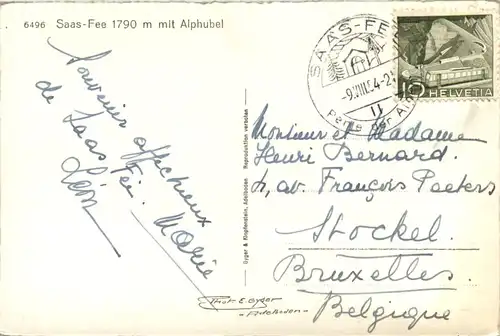 6496 Saas-Fee 1790 m mit Alphubel
Souvenir affectueux
de Saas
Fée. Marie
Léon
SAAS-FEE
-9.VIII.54-2
Perle der Alpen
10
HELVETIA
Monsieur et Madame
Henri Bernard.
av. François Peeters
Stockel.
Bruxelles.
Belgique
Gyger & Klopfenstein, Adelboden Reproduction verboten
Phot. E. Gyger
- Adelboden -